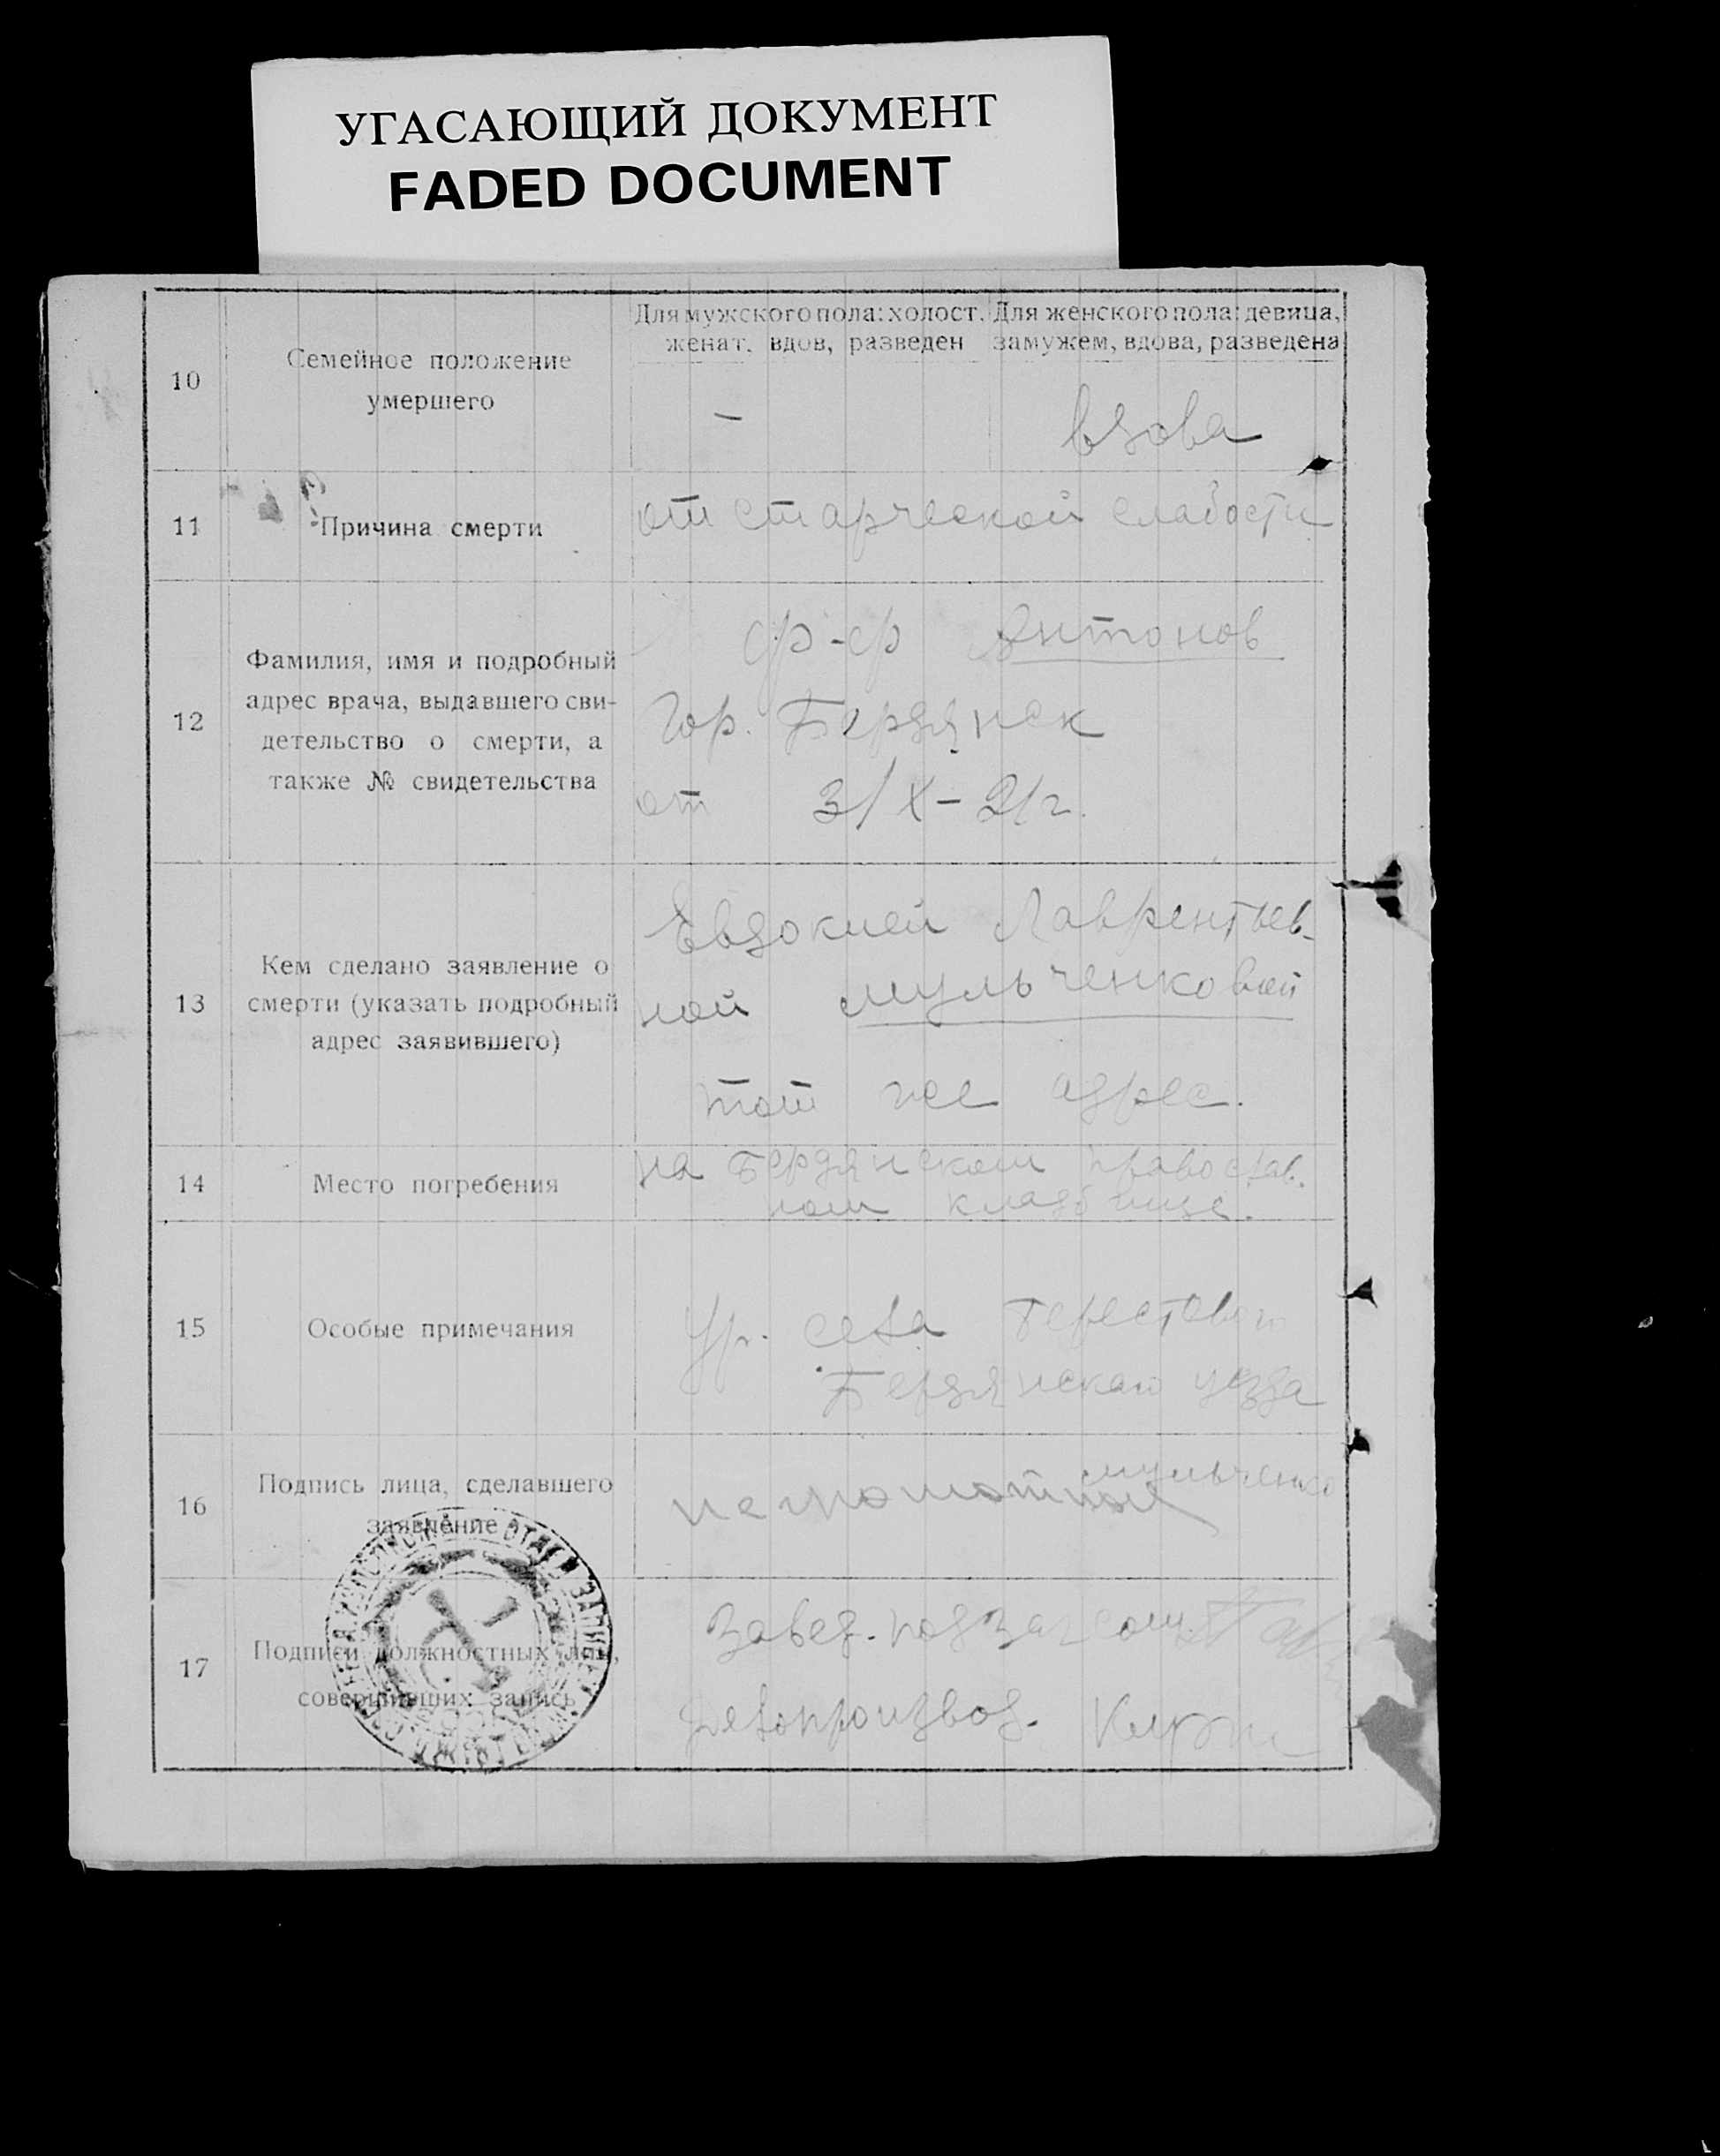 УГАСАЮЩИЙ ДОКУМЕНТ
FADED DOCUMENT
10
Семейное положение
умершего
Для мужского пола: холост,
женат, вдов, разведен
Для женского пола: девица,
замужем, вдова, разведена
–
вдова
11
Причина смерти
от старческой слабости
12
Фамилия, имя и подробный
адрес врача, выдавшего сви-
детельство о смерти, а
также № свидетельства
ф-р Антонов
Гор. Бердянск
от 3/X – 21 г.
13
Кем сделано заявление о
смерти (указать подробный
адрес заявившего)
Евдокией Лаврентьев-
ной Мульченковой
тот же адрес.
14
Место погребения
на Бердянском православ.
ном кладбище.
15
Особые примечания
Ур. села
Бердянского уезда
16
Подпись лица, сделавшего
заявление
неграмотная Мульченко
17
Подписи должностных лиц,
совершивших запись
Завед. подзагсом
Делопроизвод.